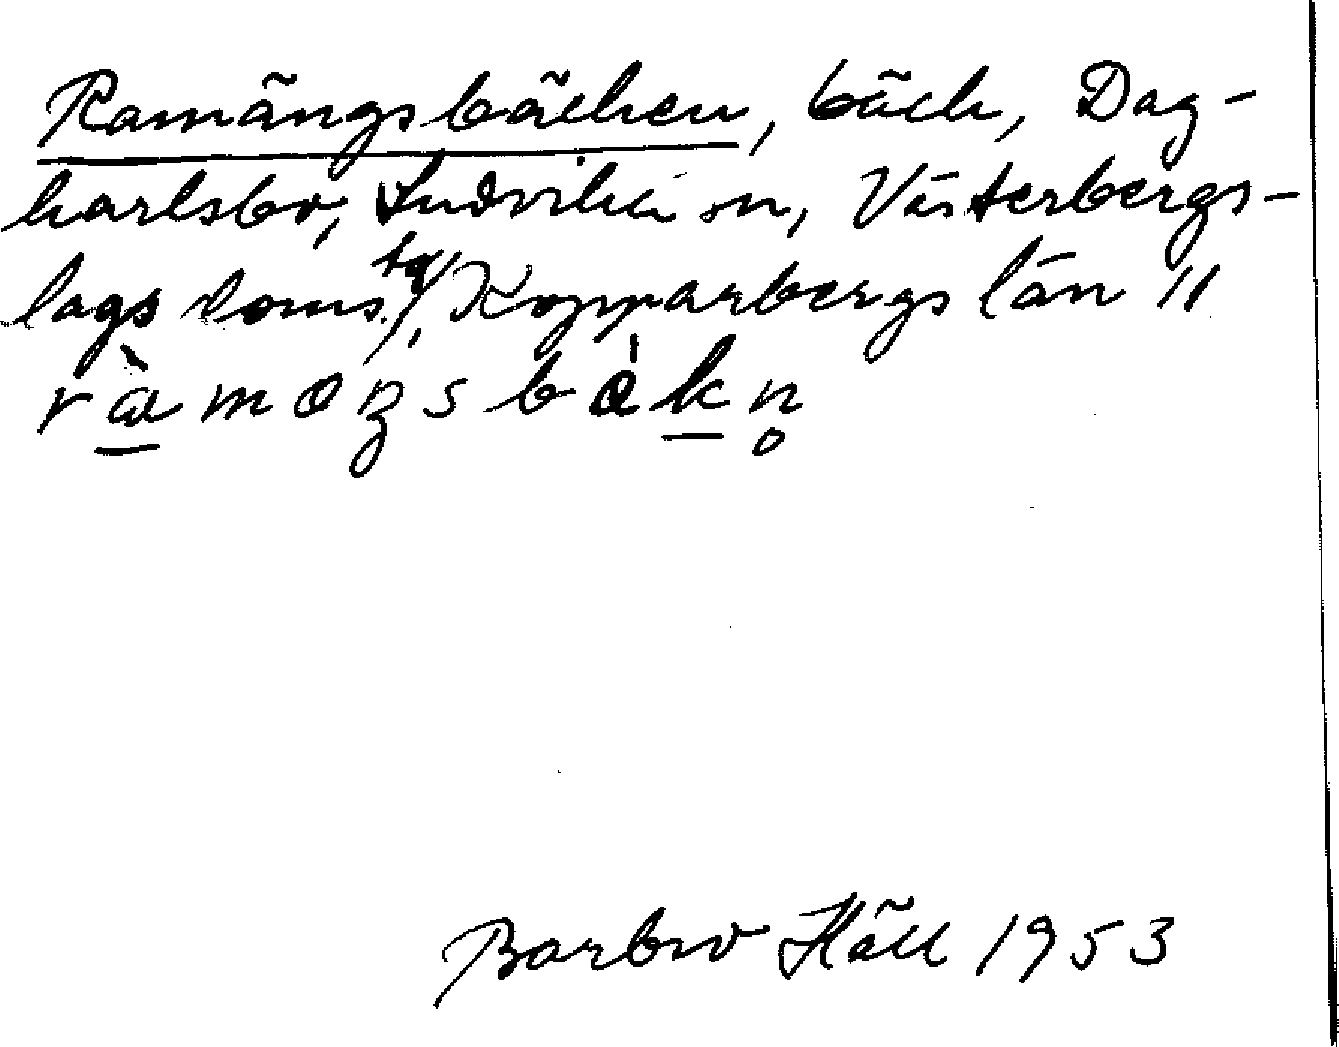 Ramängsbäcken, bäck, Dag-
karlsbo, Ludvika sn, Västerbergs-
lags doms., Kopparbergs län //
ràmoŋsbàkn̥
Barbro Häll 1953